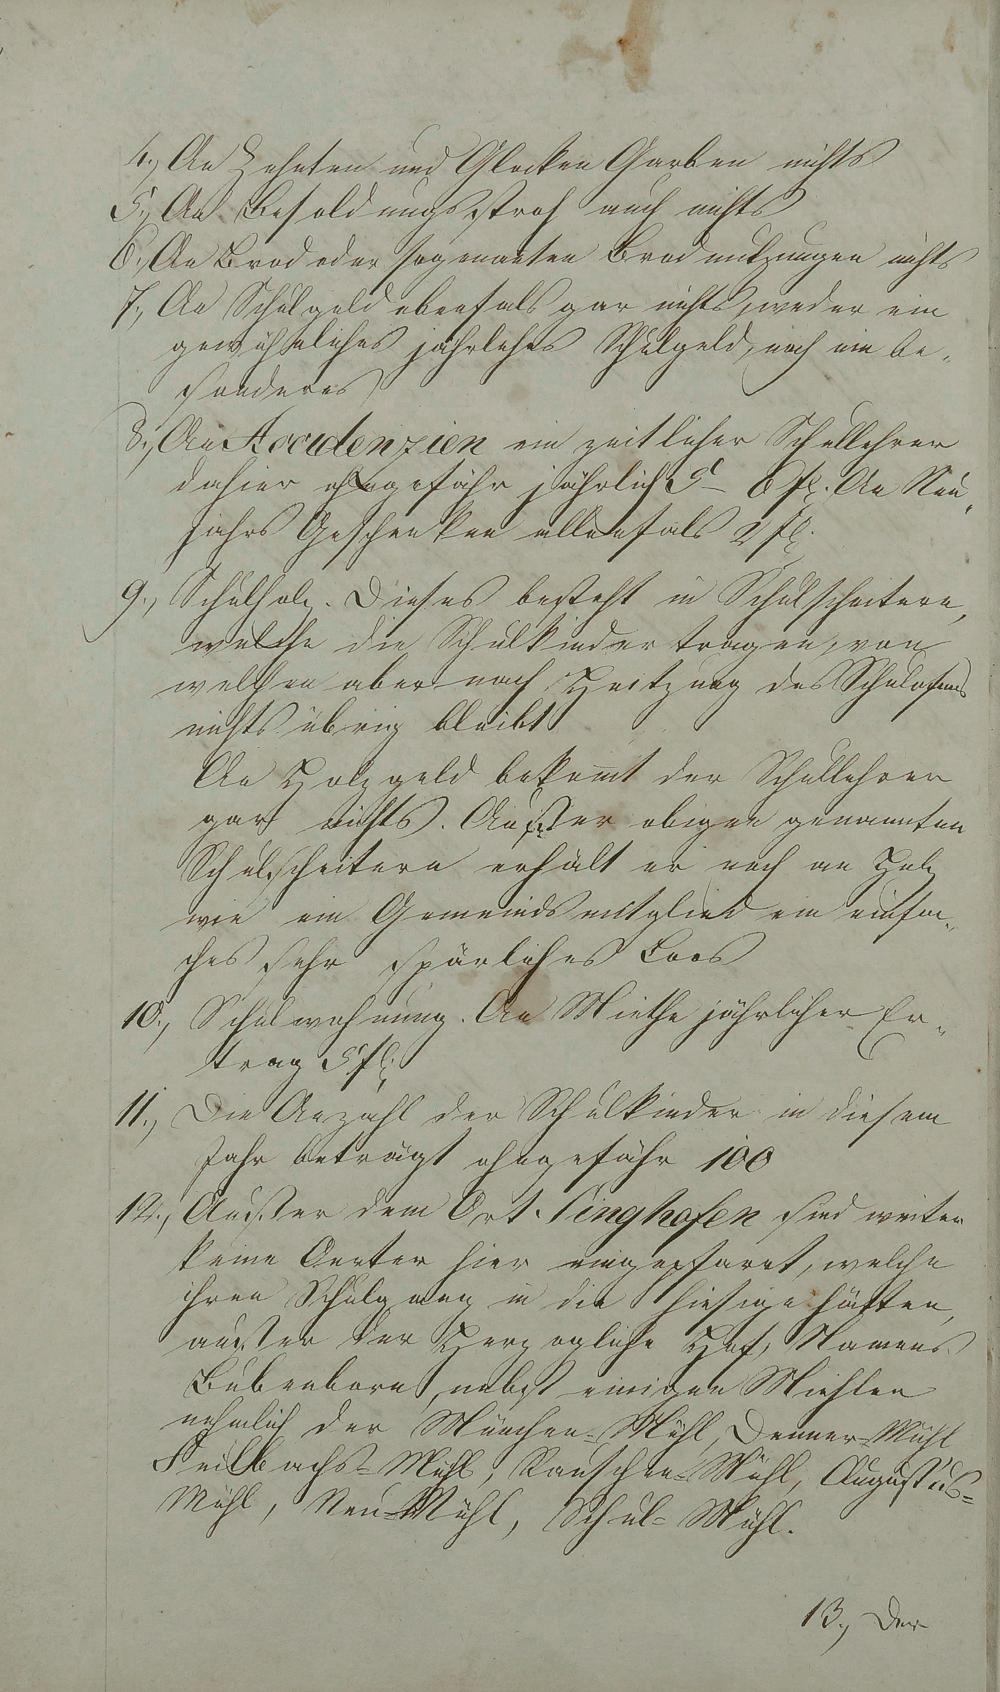 4., An Zehnten und Glocken Garben nichts
5., An Besoldungsstroh auch nichts
6., An Brod oder sogenanten Brodnutzungen nichts
7., An Schulgeld ebenfals gar nichts, weder ein
gewöhnliches jährliches Schulgeld, noch ein be-
sonderes
8., An Accidenzien ein zeitlicher Schullehrer
dahier ohngefähr jährlich 5 – 6 fl. An Neu-
jahrs Geschenken allenfals 2 fl.
9., Schulholz. Dieses besteht in Schulscheitern,
welche die Schulkinder tragen, von
welchen aber nach Heitzung des Schulofens
nichts übrig bleibt
An Holzgeld bekomt der Schullehrer
gar nichts. Ausser obigen genannten
Schulscheitern erhält er noch an Holz
wie ein Gemeindsmitglied ein einfa-
ches sehr spärliches Loos
10., Schulwohnung. An Miethe jährlicher Er-
trag 5 fl.
11., Die Anzahl der Schulkinder in diesem
Jahr beträgt ohngefähr 100
12., Ausser dem Ort Singhofen sind weiter
keine Oerter hier eingepfarrt, welche
ihren Schulgang in die hiesige hätten,
ausser der Herzogliche Hof, Namens
Bubenborn, nebst einigen Mühlen
nehmlich der München-Mühl, Denner-Mühl
Seilbachs-Mühl, Rauschen-Mühl, Augustus-
Mühl, Neu-Mühl, Schul-Mühl.
13., Der